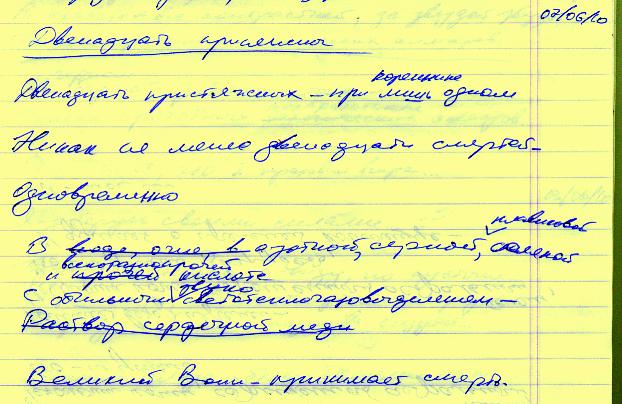 07/06/10
Двенадцать присяжных
кореннике
Двенадцать пристяжных – при лишь одном
Никак не менее двенадцати смертей –
Одновременно
плавиковой
В воде, огне, в азотной, серной, соляной
всякоразнопрочей
и прочей кислоте
звуко
С обильным светотеплогазовыделением –
Раствор сердечной меди
Великий Воин – принимает смерть.